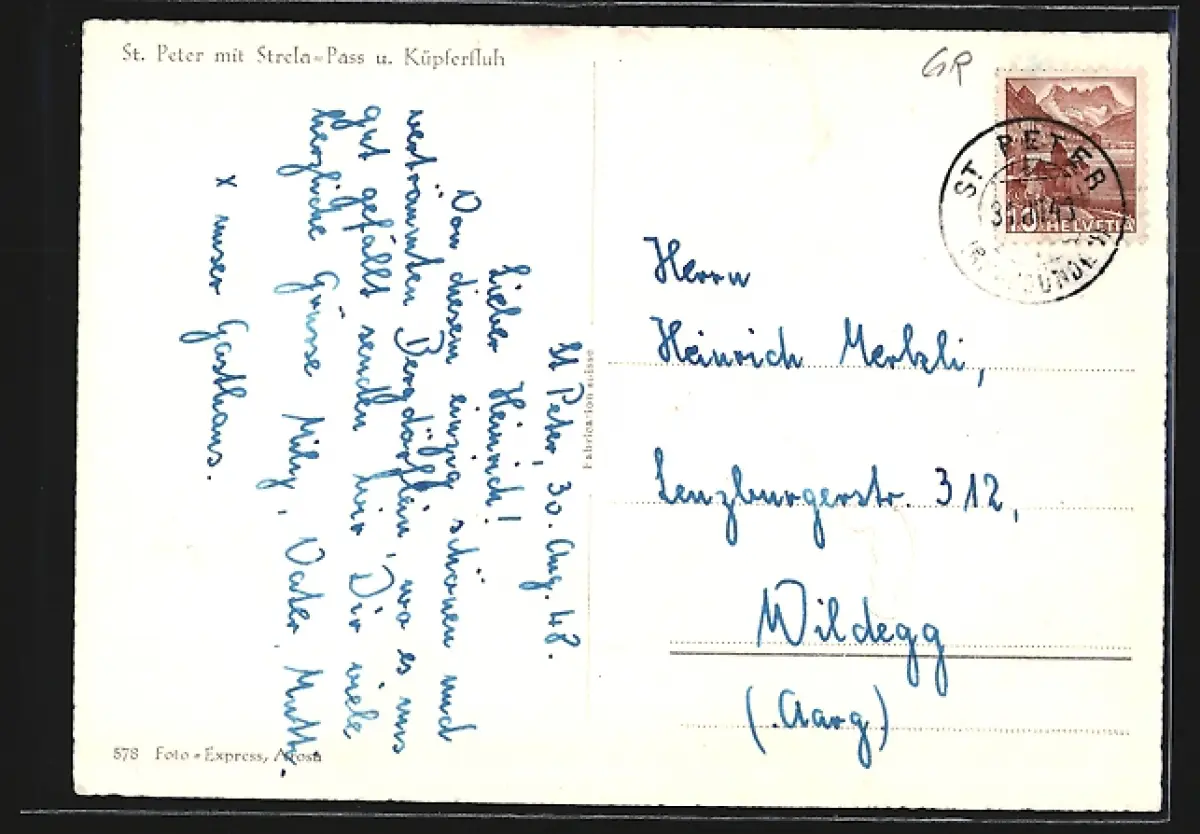 St. Peter mit Strela-Pass u. Küpferfluh
GR
ST. PETER
HELVETIA
10
St Peter, 30. Aug. 48.
Lieber Heinrich!
Von diesem einzig schönen und
verträumten Bergdörflein, wo es uns
gut gefällt senden wir Dir viele
herzliche Grüsse Mily, Vater, Mutt.
x unser Gasthaus.
Fabrication suisse
Herrn
Heinrich
Lenzburgerstr. 312,
Wildegg
(Aarg)
578 Foto-Express, Arosa